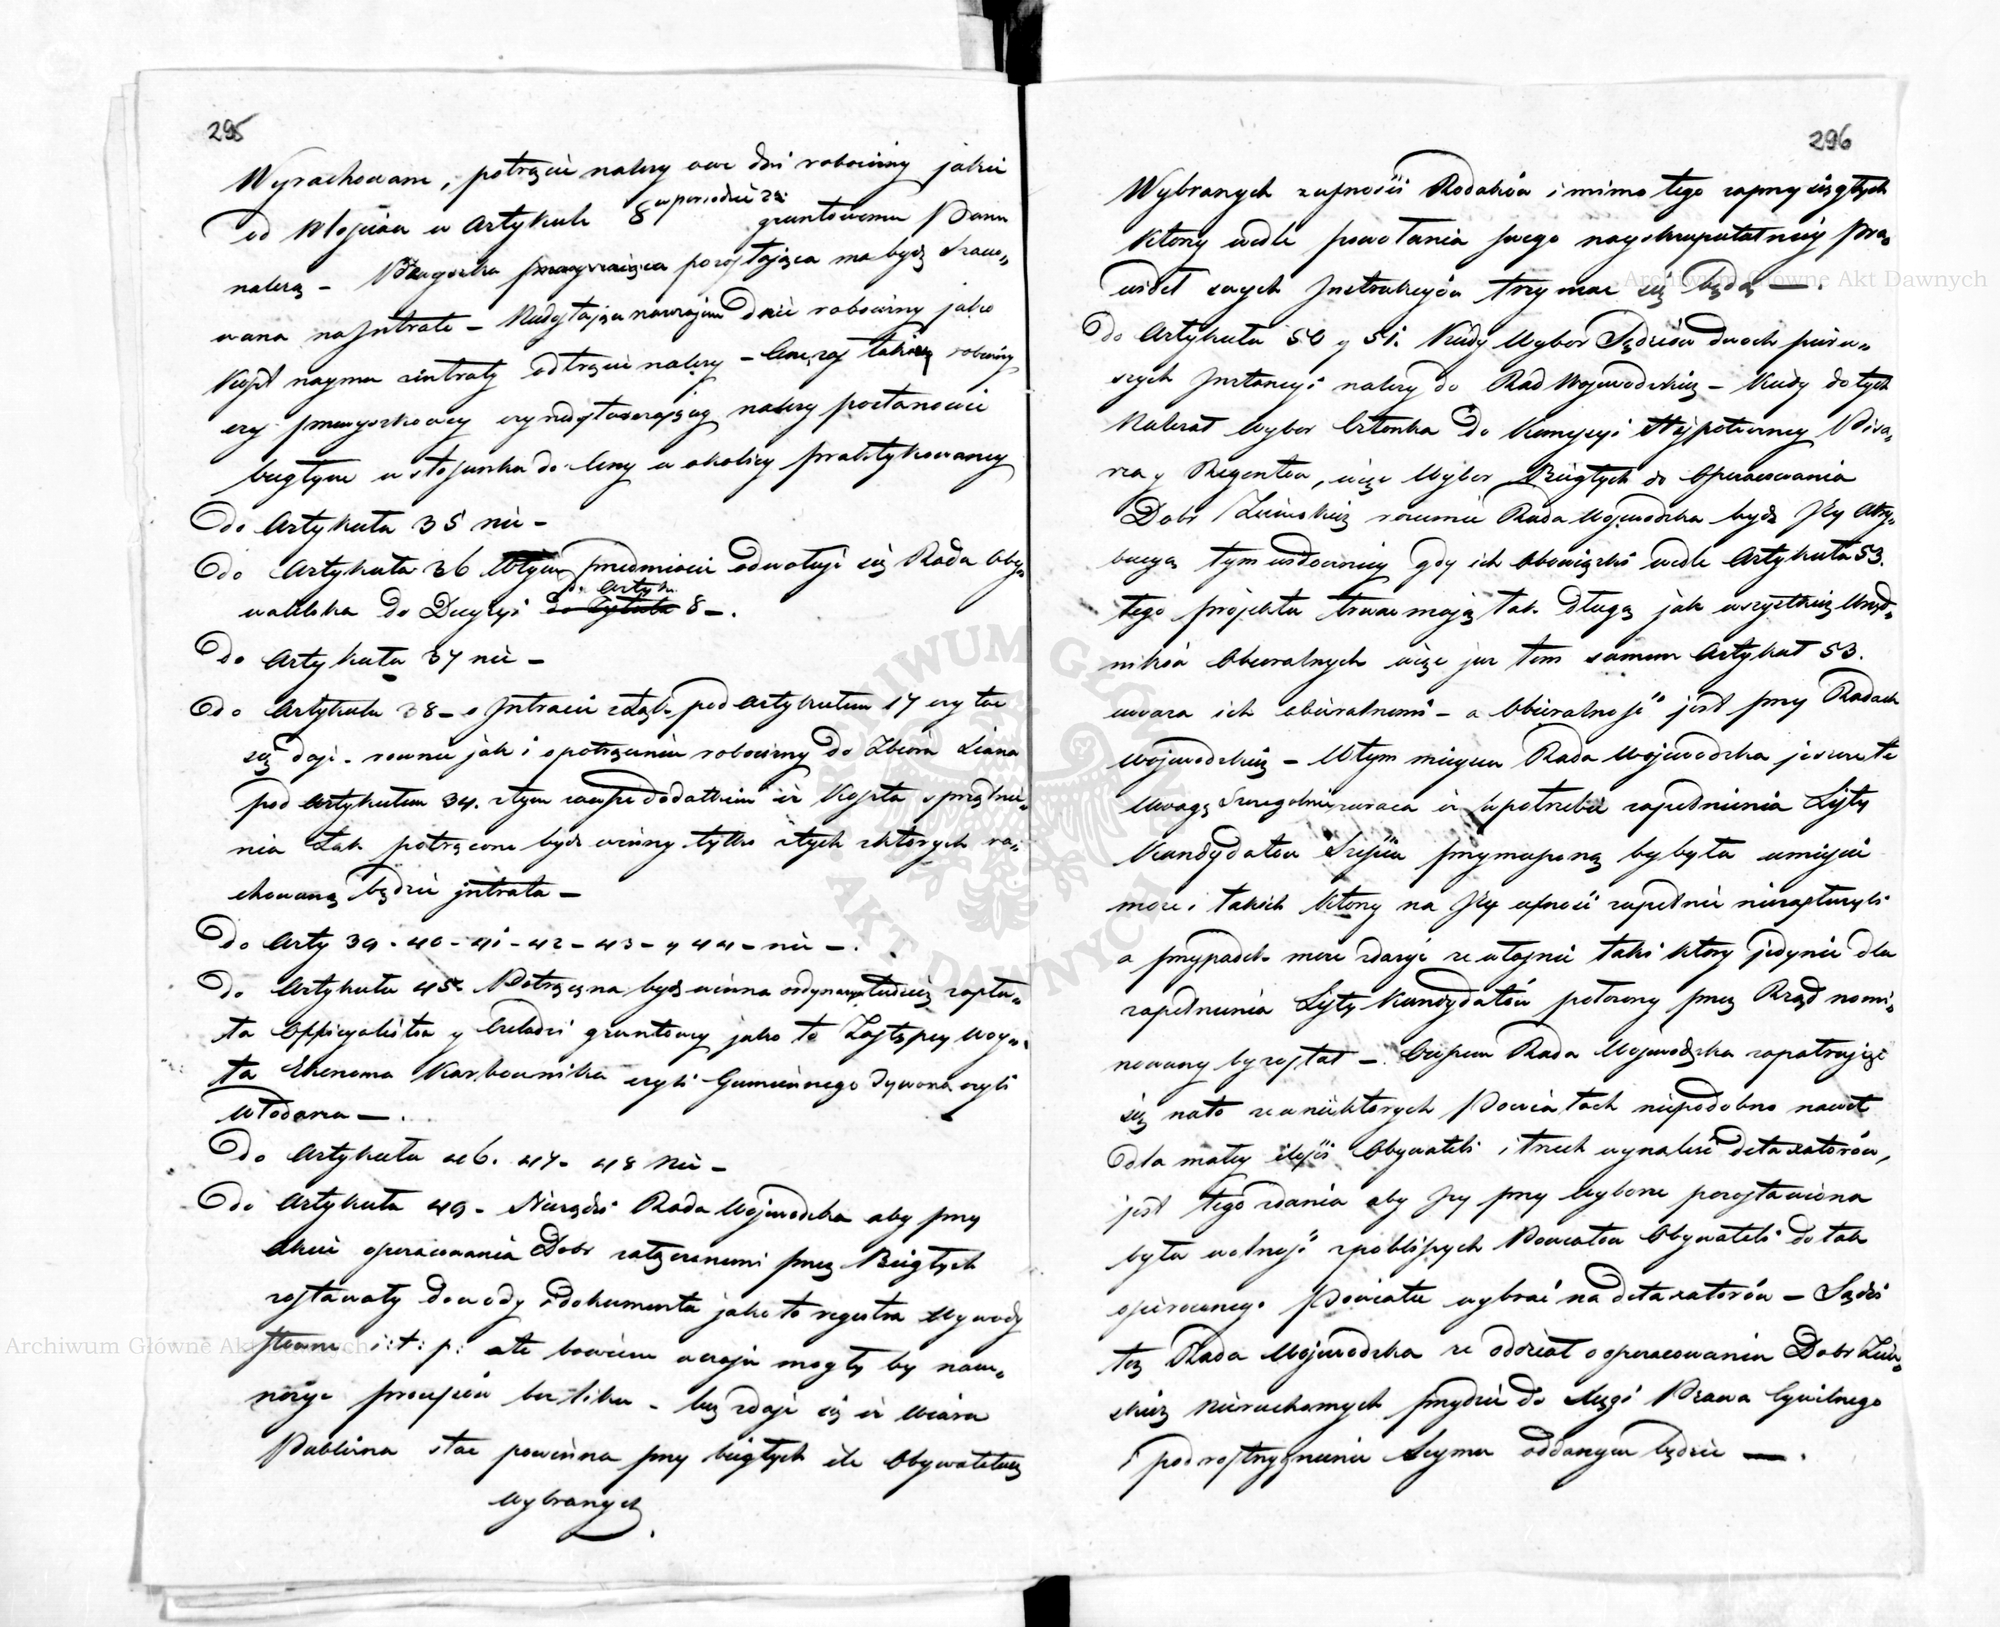 295
Wyrachowane, potrącić należy owe dni robocizny jakie
od Włościan w Artykule 8 w porządku za gruntowemu Panu
należą - Pańszczyzna pozostająca ma być szaco„
wana na Intratę - dnie robocizny jako
koszt naymu z intraty odtrącić należy - Cenę zaś takiey robocizny
czy czy należy postanowić
biegłym w stosunku do Ceny w okolicy praktykowaney
Do Artykułu 35 nic -
Do Artykułu 36 przedmiocie odwołuje się Rada Oby„
watelska do Decyzyi do Artyku. 8 -.
Do Artykułu 37 nic -
Do Artykułu 38 - o Intracie z Łąk pod Artykułem 17 czytać
się daje - równie jak i o potrąceniu robocizny do Zbioru Siana
pod Artykułem 34. z tym dodatkiem iż Koszta sprzątnie„
nia Łąk potrącone być winny tylko z tych z których ra„
chowaną będzie jntrata -
Do Arty 39 - 40 - 41 - 42 - 43 - y 44 - nic -.
Do Artykułu 45. Potrącona być winna ordynarya tudzież zapła„
ta Officyalistów y Czeladzi gruntowey jako to Zastępcy Woy„
ta Ekonoma Karbownika czyli Gumiennego Dywona czyli
Włodarza -.
Do Artykułu 46. 47. 48 Nic -
Do Artykułu 49 - Nie sądzi Rada Wojewodzka aby przy
akcie oszacowania Dobr załączonemi przez Biegłych
zostawały dowody i dokumenta jako to regestra Wywody
słowne i: t: p: ale bowiem mogły by nam„
nożyć processów bez liku - lecz zdaje się iż wiara
Publiczna stać powinna przy biegłych ile Obywatelach
wybranych
296
Wybranych z ufności Rodaków i mimo tego zaprzysięgłych
którzy wedle powołania swego nayskrupulatniey pra„
wideł swych Instrukcyów trzymać się będą -.
Do Artykułu 50 y 51. Kiedy Wybor Sędziów dwoch pierw„
szych Instancyi należy do Rad Wojewodzkich - kiedy do tych
Należał Wybor Członka do Kommissyi Hypoteczney Pisa„
rza y Regentow, więc Wybor Biegłych do Oszacowania
Dobr Ziemskich rozumie Rada Wojewodzka być Jey Atry„
bucyą tym widoczniey gdy ich Obowiązki wedle Artykułu 53.
tego projektu trwać mają tak długo jak wszystkich Urzęd„
ników Obieralnych więc już tem samem Artykuł 53.
uważa ich obieralnemi - a Obieralność jest przy Radach
Wojewodzkich - W tym mieyscu Rada Wojewodzka jeszcze tę
Uwagę szczegolnie zwraca iż w potrzebie zapełnienia Listy
Kandydatów Sześciu przymuszoną by była umieścić
może i takich którzy na Jey ufność zupełnie nie zasłużyli
a przypadek może zdarzyć że właśnie taki który jedynie dla
zapełnienia Listy Kandydatów położony przez Rząd nomi„
nowany by został -. Oczem Rada Wojewodzka zapatrując
się na to że w niektorych Powiatach niepodobno nawet
dla małey ilości Obywateli i trzech wynaleść detaxatorów,
jest tego zdania aby Jey przy Wyborze pozostawiona
była wolność z pobliższych Powiatów Obywateli do tak
opuszczonego Powiatu wybrać na detaxatorów - Sądzi
też Rada Wojewodzka że oddział o oszacowaniu Dobr Ziem„
skich Nieruchomych przydzie do Xięgi Prawa Cywilnego
i pod rozstrzygnienie Seymu oddanym będzie -.
Archiwum Główne Akt Dawnych
Archiwum Główne Akt Dawnych
ARCHIWUM GŁÓWNE AKT DAWNYCH